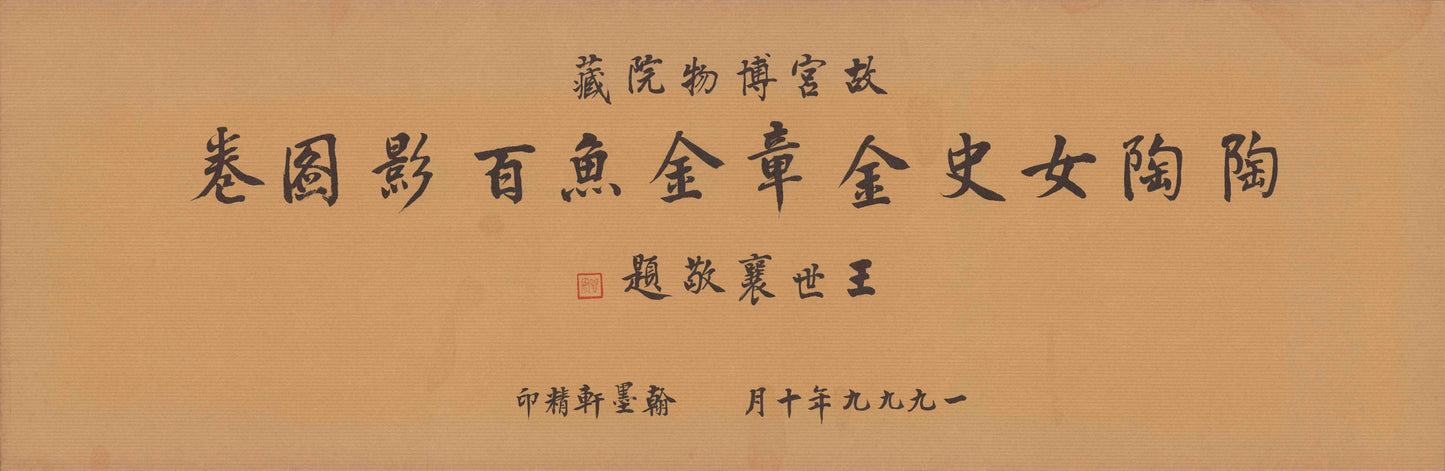 故宮博物院藏
陶陶女史金章金魚百影圖卷
王世襄敬題
一九九九年十月 翰墨軒精印